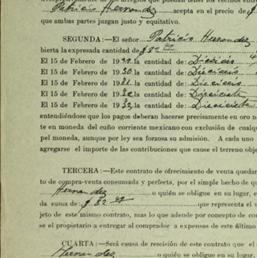 que ambas partes juzgan justo y equitativo.
SEGUNDA :—El señor Patricio Hernandez
bierta la expresada cantidad de $
El 15 de Febrero de 19 la cantidad de:
El 15 de Febrero de 19 la cantidad de:
El 15 de Febrero de 19 la cantidad de:
El 15 de Febrero de 19 la cantidad de: Diecisiete
El 15 de Febrero de 19 la cantidad de: Diecisiete
entendiéndose que los pagos deberán hacerse precisamente en oro n
te en moneda del cuño corriente mexicano con exclusión de cualqu
pel moneda, aunque por ley sea forzosa su admisión. A cada uno d
agregarse el importe de las contribuciones que cause el terreno obje
TERCERA :—Este contrato de ofrecimiento de venta quedar
to de compra-venta consumada y perfecta, por el simple hecho de q
o quién se obligue en su lugar, e
da suma de: $ que representa el v
jeto de este mismo contrato, mas lo que adende por concepto de c
se el propietario a entregar al comprador a expensas de este último
CUARTA :—Será causa de rescisión de este contrato que el
o quién se obligue en su l